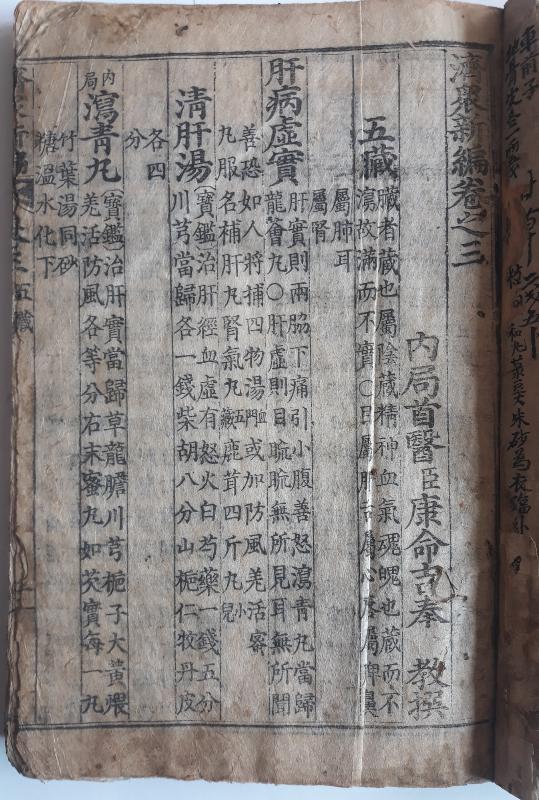 濟衆新編卷之三
內局首醫臣康命吉奉 教撰
五藏 藏者藏也屬陰藏精神血氣魂魄也藏而不
瀉故滿而不實○目屬肝舌屬心唇屬脾鼻
屬肺耳
屬腎
肝病虛實 肝實則兩脇下痛引小腹善怒瀉青丸當歸
龍薈丸○肝虛則目䀮䀮無所見耳無所聞
善恐如人將捕四物湯血門或加防風羌活蜜
丸服名補肝丸腎氣丸五藏鹿茸四斤丸小兒
淸肝湯 寶鑑治肝經血虛有怒火白芍藥一錢五分
川芎當歸各一錢柴胡八分山梔仁牧丹皮
各四
分
內局 瀉青丸 寶鑑治肝實當歸草龍膽川芎梔子大黃煨
羌活防風各等分右末蜜丸如芡實每一丸
竹葉湯同砂
糖溫水化下
五藏
車前子